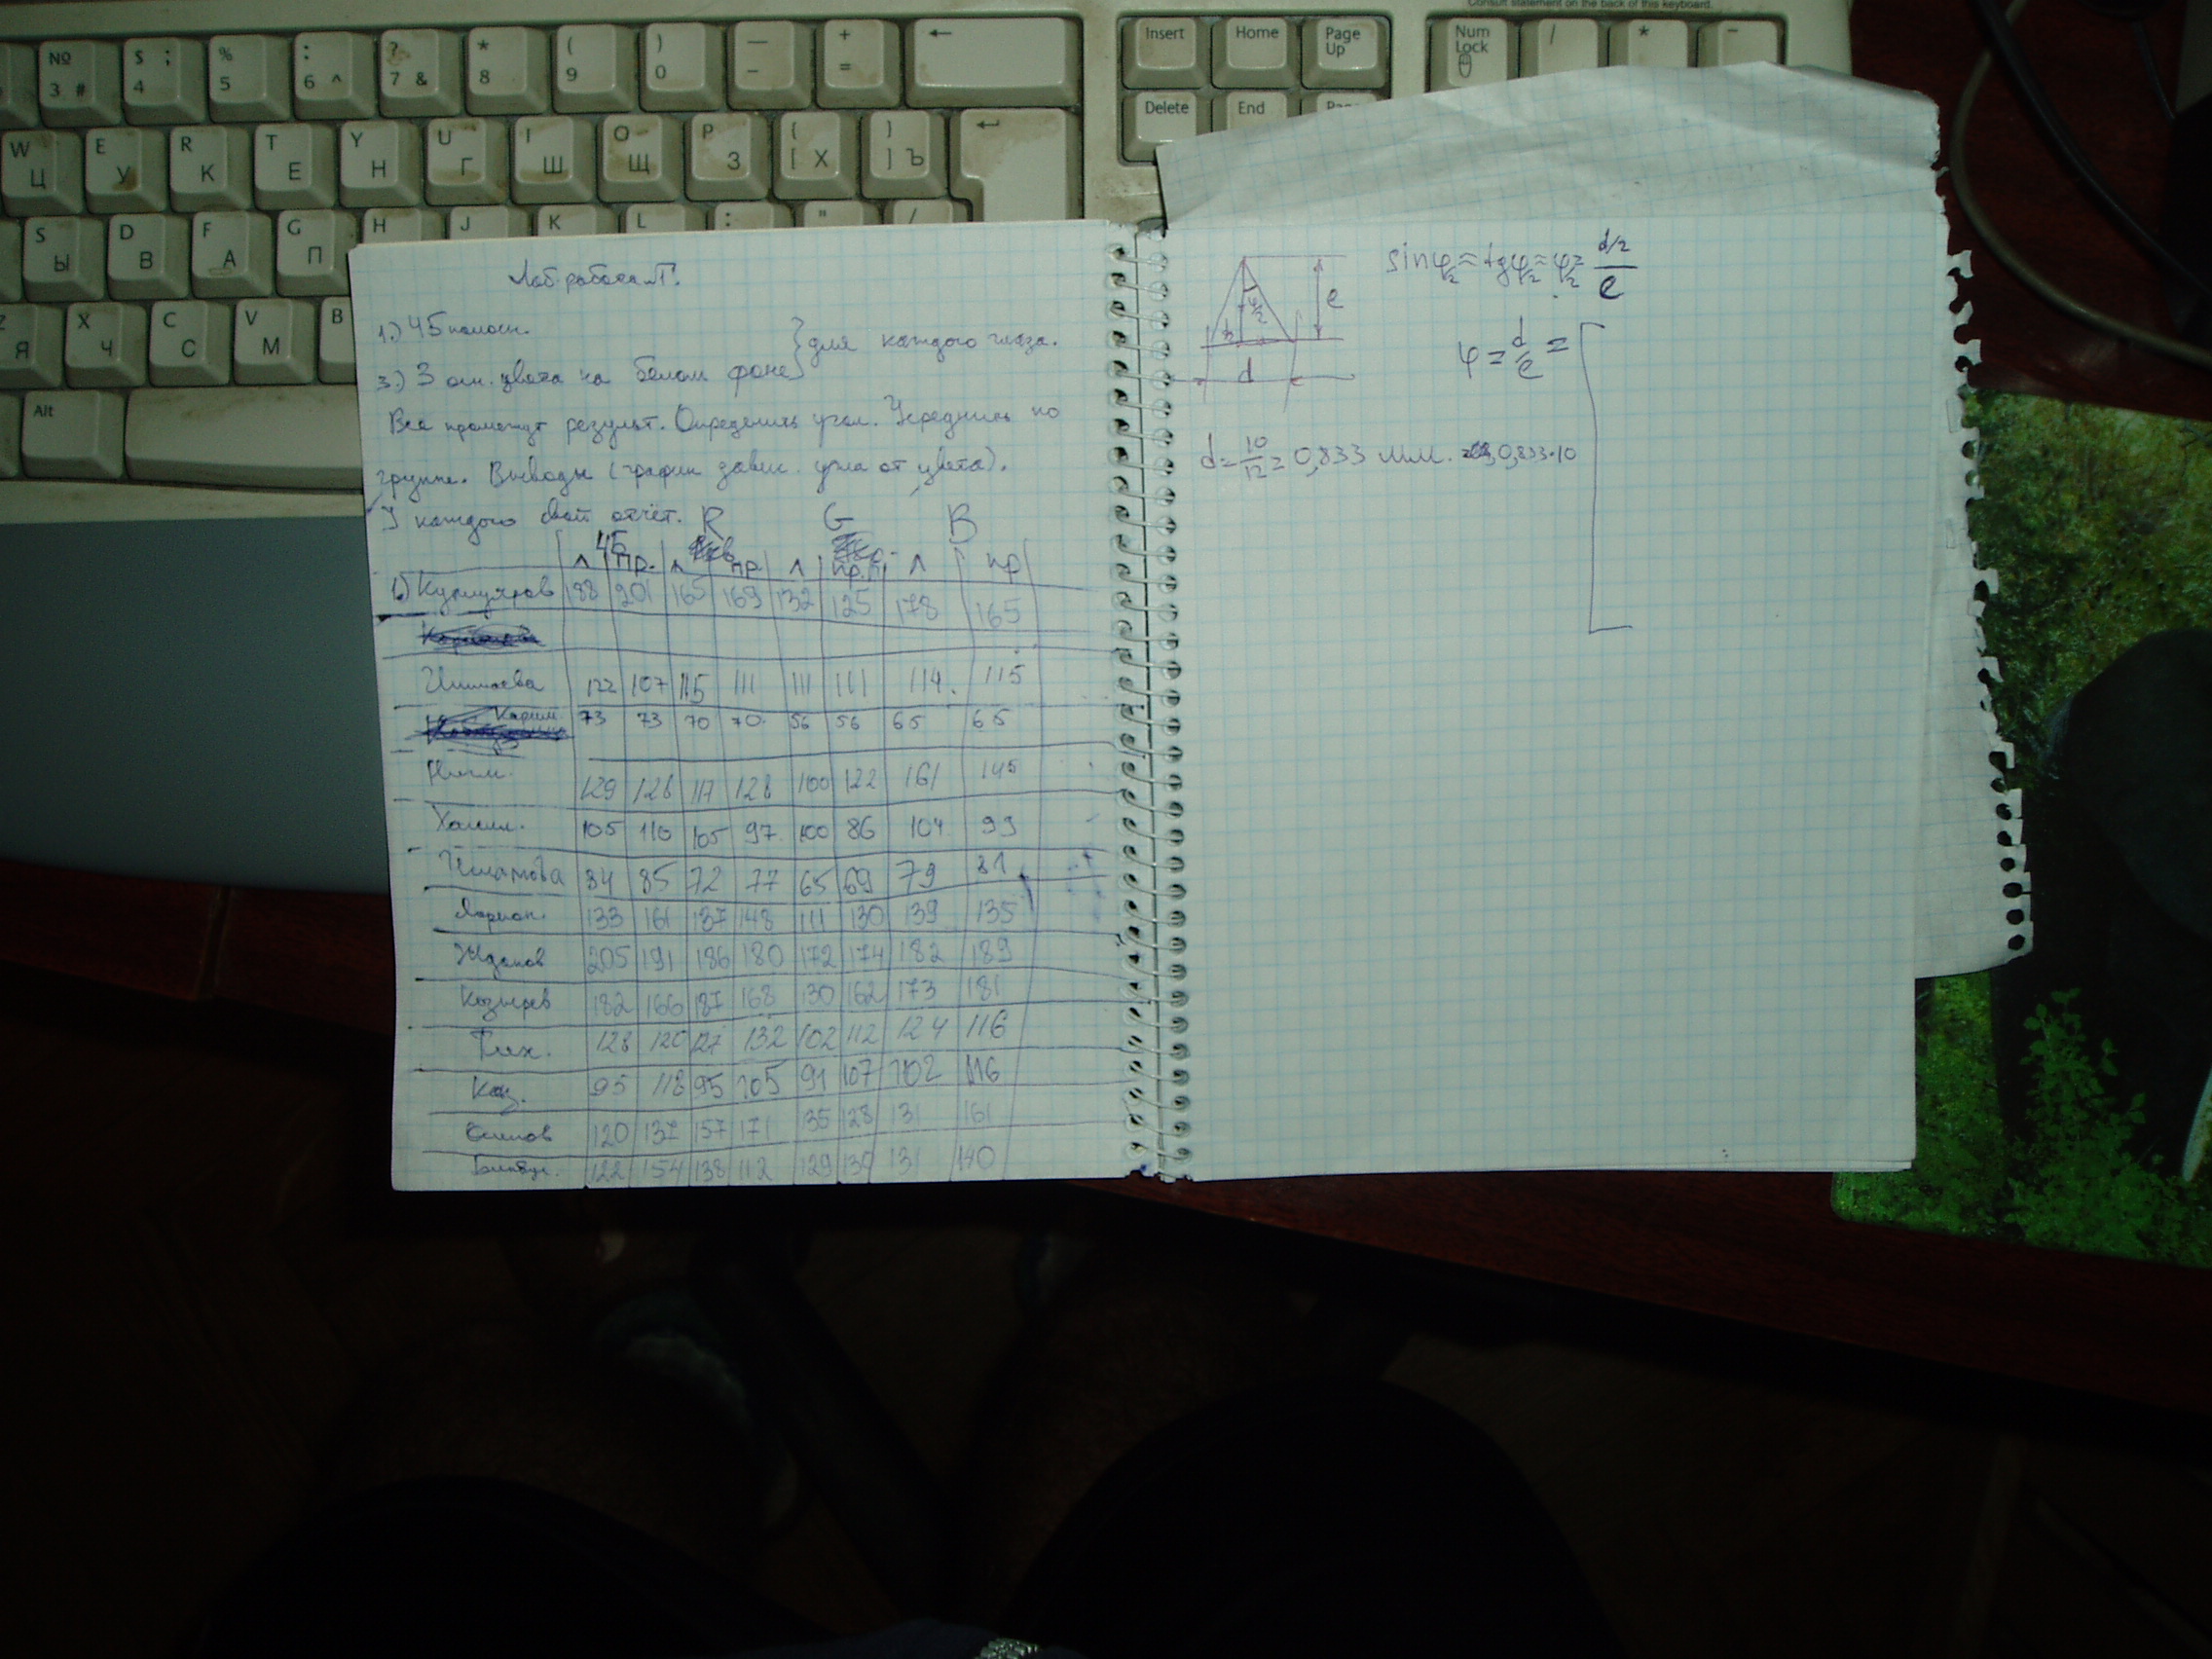 Consult statement on the back of this keyboard.
№ 3 #
$ ; 4
% 5
: 6 ^
? 7 &
* 8
( 9
) 0
— -
+ =
←
Insert
Home
Page Up
Num Lock
/
*
-
Delete
End
W Ц
E У
R К
T Е
Y Н
U Г
I Ш
O Щ
P З
{ [ Х
} ] Ъ
S Ы
D В
F А
G П
H
J
K
L
Z Я
X Ч
C С
V М
B
Alt
Лаб. работа №1.
1.) ЧБ полосн.
3.) 3 осн. цвета на белом фоне } для каждого глаза.
Все промежут результ. Определить угол. Усреднить по
группе. Выводы (график завис. угла от цвета).
У каждого свой отчёт.
ЧБ R G B
л пр. л пр. л пр. л пр
1.) 188 201 165 169 132 125 178 165
122 107 115 111 111 111 114. 115
Карим. 73 73 70 70. 56 56 65 65
129 128 117 128 100 122 161 145
105 110 105 97. 100 86 104. 93
84 85 72 77 65 69 79 81
Ларион. 133 161 137 148 111 130 139 135
Жданов 205 191 186 180 172 174 182 189
Козырев 182 166 187 168 130 162 173 181
128 120 127 132 102 112 124 116
Каз. 95 118 95 105 91 107 102 116
120 137 157 171 135 128 131 161
122 154 138 112 129 137 131 140
sin φ/2 ≈ tg φ/2 ≈ φ/2 = d/2 / e
φ = d/e =
φ/2
e
h
d
d = 10/12 = 0,833 мм. 0,833·10